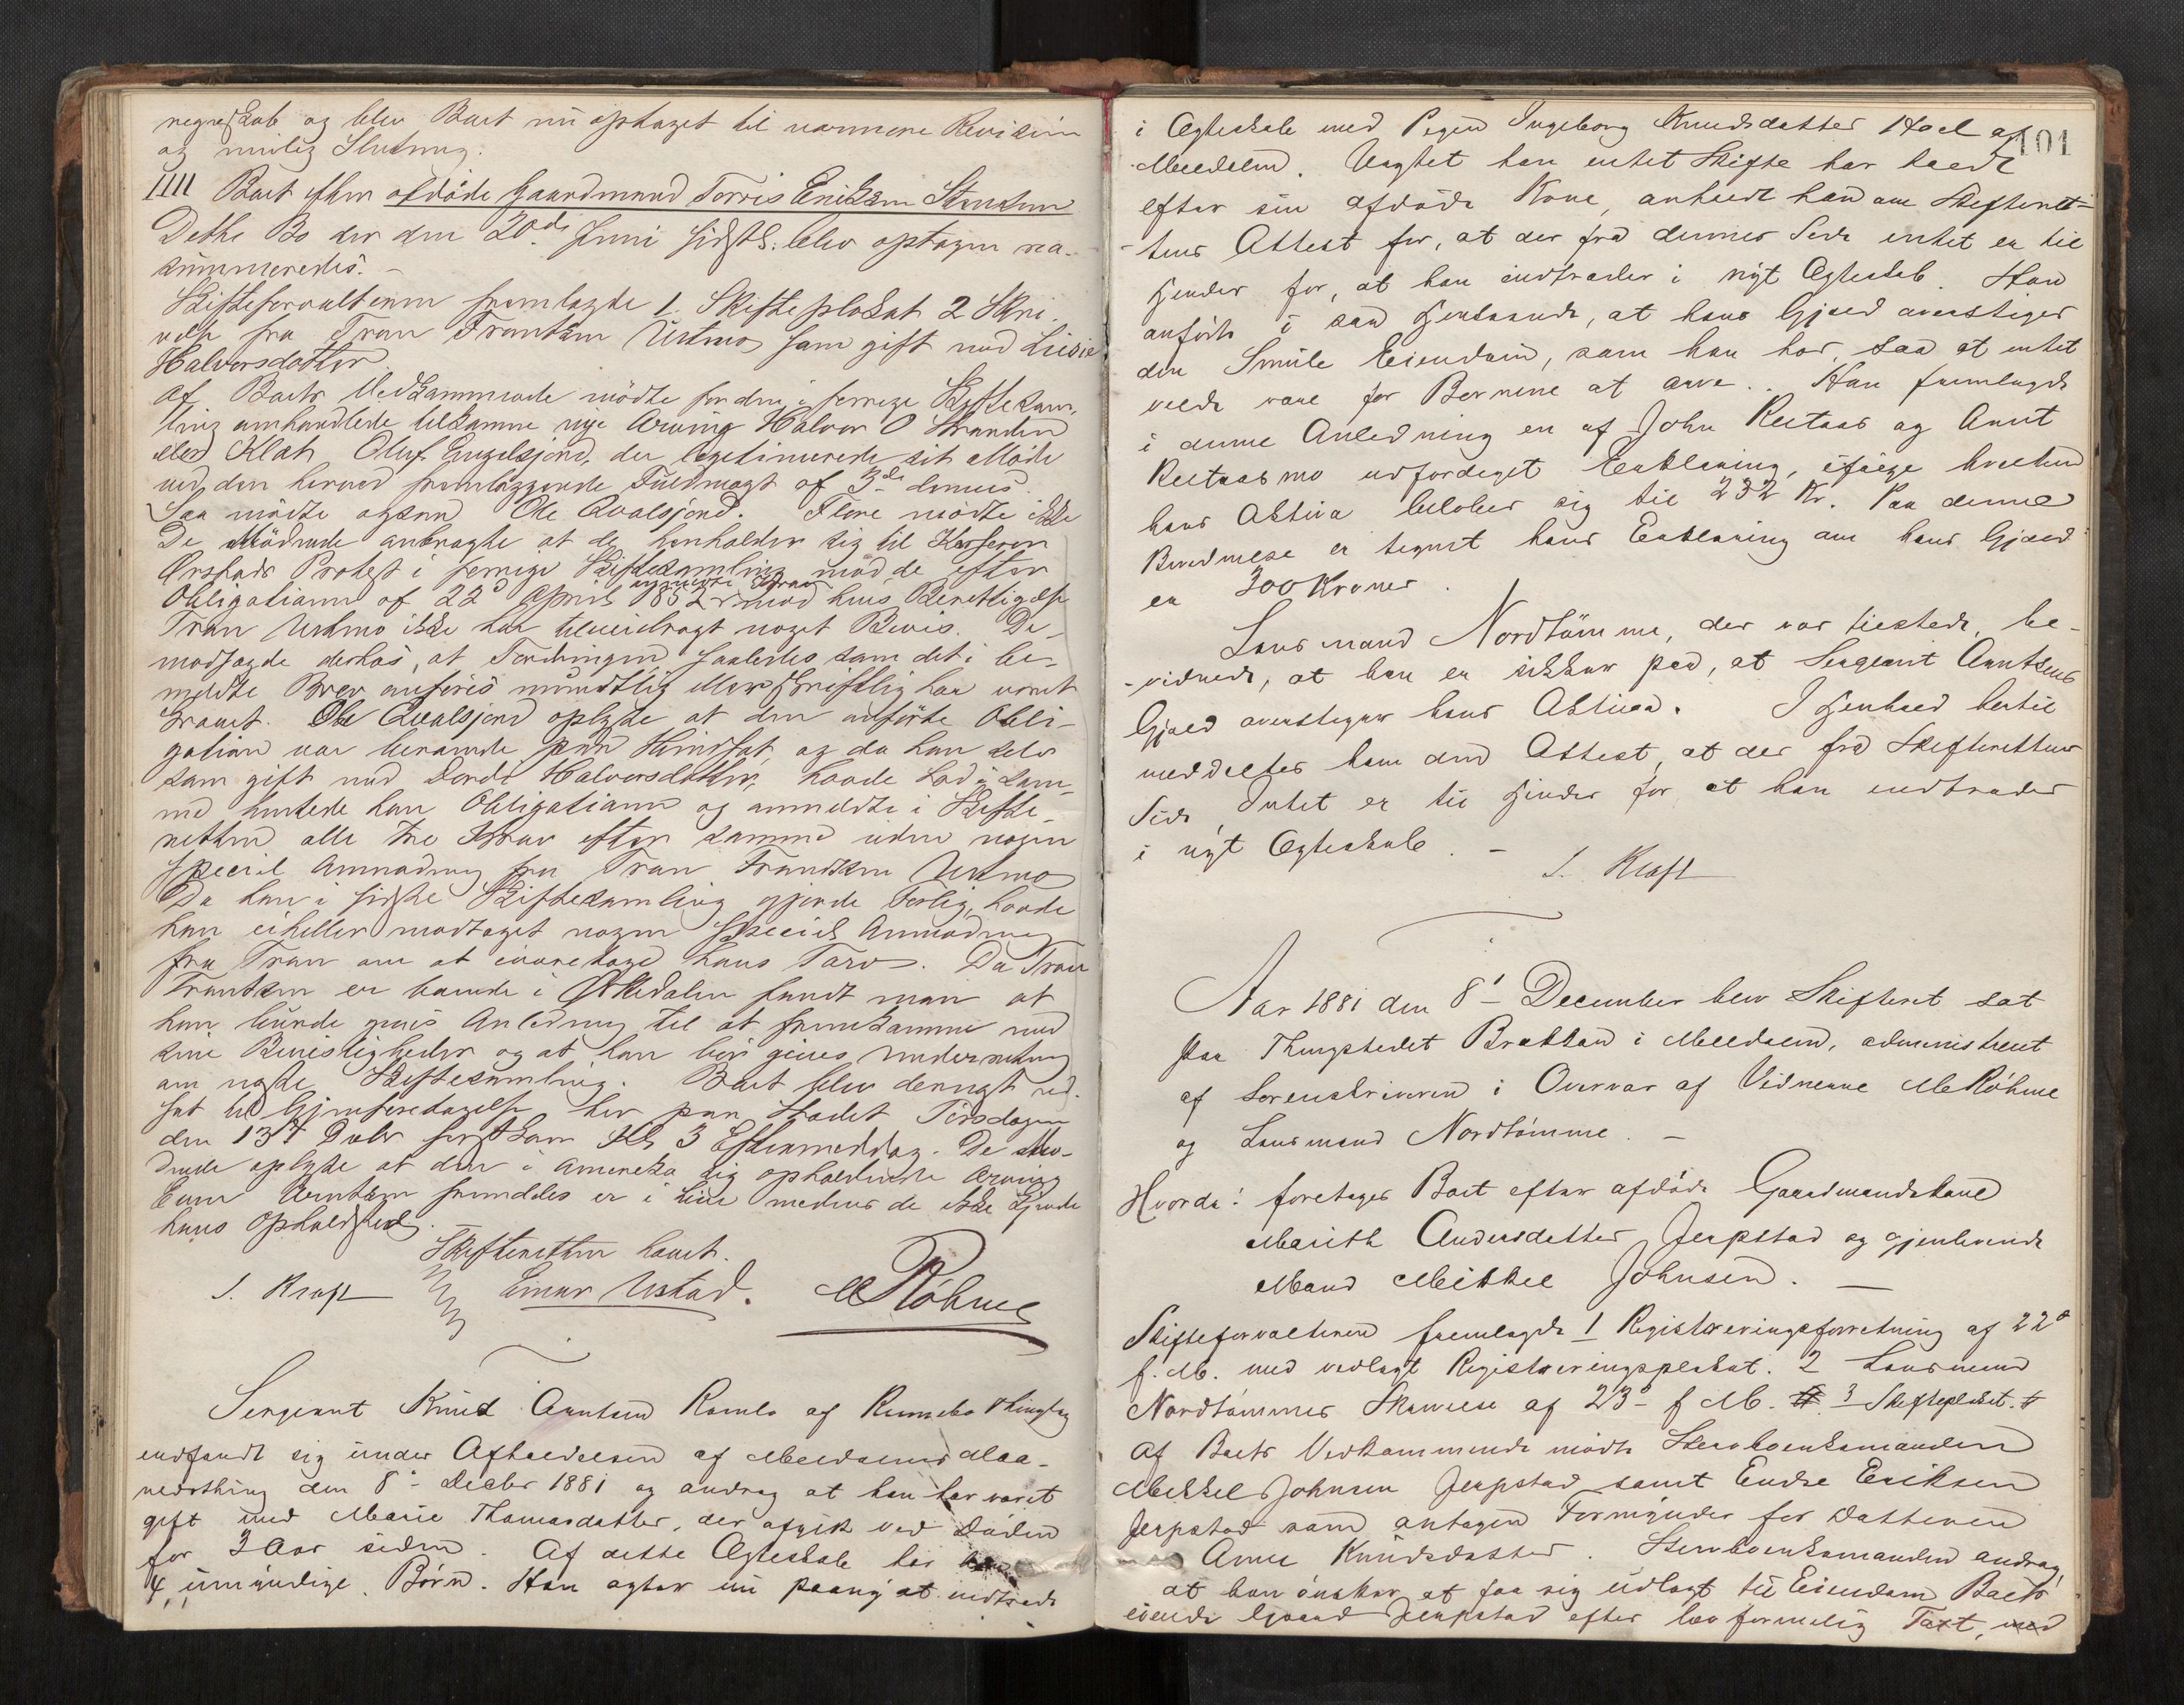 regnskab og blev Boet nu optaget til nærmere Revision
og mulig Slutning.
IIII Boet efter afdøde Gaardmand Torris Eriksen
Dette Bo der den 20de Juni sidstl. blev optagen rea-
sumeredes. -
Skifteforvalteren fremlagde 1. Skifteplakat 2 Skri-
velse fra Tran Frantsen Ustmo som gift med
Halvorsdatter.
Af Boets Vedkommende mødte for den i forrige Skiftesam-
ling omhandlede tilkomne nye Arving Halvor O Stranden
eller Klat Oluf Engelsjord, der legitimerede sit Møde
ved den herved fremlæggende Fuldmagt af 3de dennes.
Saa mødte ogsaa Ole Qvalsjord. Flere mødte ikke
De Mødende anbragte at de henholder sig til Kasserer
Protest i forrige Skiftesamling mod de efter
Obligationen af 22d April 1852 anmeldte Krav mod hvis Berettigelse
Tran Ustmo ikke har tilveiebragt noget Bevis. De
modsagde derhos, at Fordringen saaledes som det i be-
meldte Brev anføres mundtlig eller skriftlig har været
kravet. Ole Qvalsjord oplyste at den anførte Obli-
gation var beroende paa og da han selv
som gift med Dordi Halvorsdatter, havde Lod i sam-
me hentede han Obligationen og anmeldte i Skifte-
retten alle tre Krav efter samme uden nogen
special Anmodning fra Tran Frantsen Ustmo
Da han i sidste Skiftesamling gjorde Forlig, havde
han eiheller modtaget nogen special Anmodning
fra Tran om at ivaretage hans Tarv. Da Tran
Frantsen er boende i Orkedalen fandt man at
han burde gives Anledning til at fremkomme med
sine Bevisligheder og at han bør gives Underretning
om næste Skiftesamling. Boet blev dernæst ud-
sat til Gjenforetagelse her paa Stedet Tirsdagen
den 13d Decbr førstkom Kl. 3 Eftermiddag. De Mø-
dende oplyste at den i Amerika sig opholdende Arving
Einar Arntsen fremdeles er i Live medens de ikke kjende
hans Opholdssted.
Skifteretten hævet.
S. Kraft Einar Ustad. M Röhme
Sergeant Knud Arntsen Romlo af Rennebo Thinglag
indfandt sig under Afholdelsen af Meldalens Maa-
nedsthing den 8de Decbr 1881 og androg at han har været
gift med Marie Thomasdatter, der afgik ved Døden
for 3 Aar siden. Af dette Ægteskab har han
4 umyndige Børn. Han agter nu paany at indtræde
101
i Ægteskab med Pigen Ingeborg Knudsdatter Hoel af
Meldalen. Uagtet han intet Skifte har havt
efter sin afdøde Kone, anholdt han om Skifteret-
tens Attest for, at der fra dennes Side intet er til
Hinder for, at han indtræder i nyt Ægteskab. Han
anførte i saa Henseende, at hans Gjæld overstiger
den Smule Eiendom, som han har, saa at intet
vilde være for Børnene at arve. Han fremlagde
i denne Anledning en af John Reitaas og Arnt
Reitaasmo udfærdiget Erklæring, ifølge hvilken
hans Aktiva beløber sig til 232 Kr. Paa denne
er tegnet hans Erklæring om hans Gjæld
er 300 Kroner.
Lensmand Nordtømme, der var tilstede, be-
-vidnede, at han er sikker paa, at Sergeant Arntsens
Gjæld overstiger hans Aktiva. I Henhold hertil
meddeltes ham den Attest, at der fra Skifterettens
Side Intet er til Hinder for at han indtræder
i nyt Ægteskab. -
S. Kraft
Aar 1881 den 8' December blev Skifteret sat
paa Thingstedet Brattan i Meldalen, administreret
af Sorenskriveren i Overvær af Vidnerne M Röhme
og Lensmand Nordtømme. -
Hvorda: foretages Boet efter afdøde Gaardmandskone
Marith Andersdatter Jerpstad og gjenlevende
Mand Mikkel Johnsen. -
Skifteforvalteren fremlagde 1 Registreringsforretning af 22d
f. M. med vedlagt Registreringsplakat. 2 Lensmand
Nordtømmes Skrivelse af 23d f M. 3 Skifteplakat.
Af Boets Vedkommende mødte Stervboenkemanden
Mikkel Johnsen Jerpstad samt Endre Eriksen
Jerpstad som antagen Formynder for Datteren
Anne Knudsdatter. Stervboenkemanden androg,
at han ønsker at faa sig udlagt til Eiendom Boets
eiende Gaard Jerpstad efter lovformelig Taxt, med